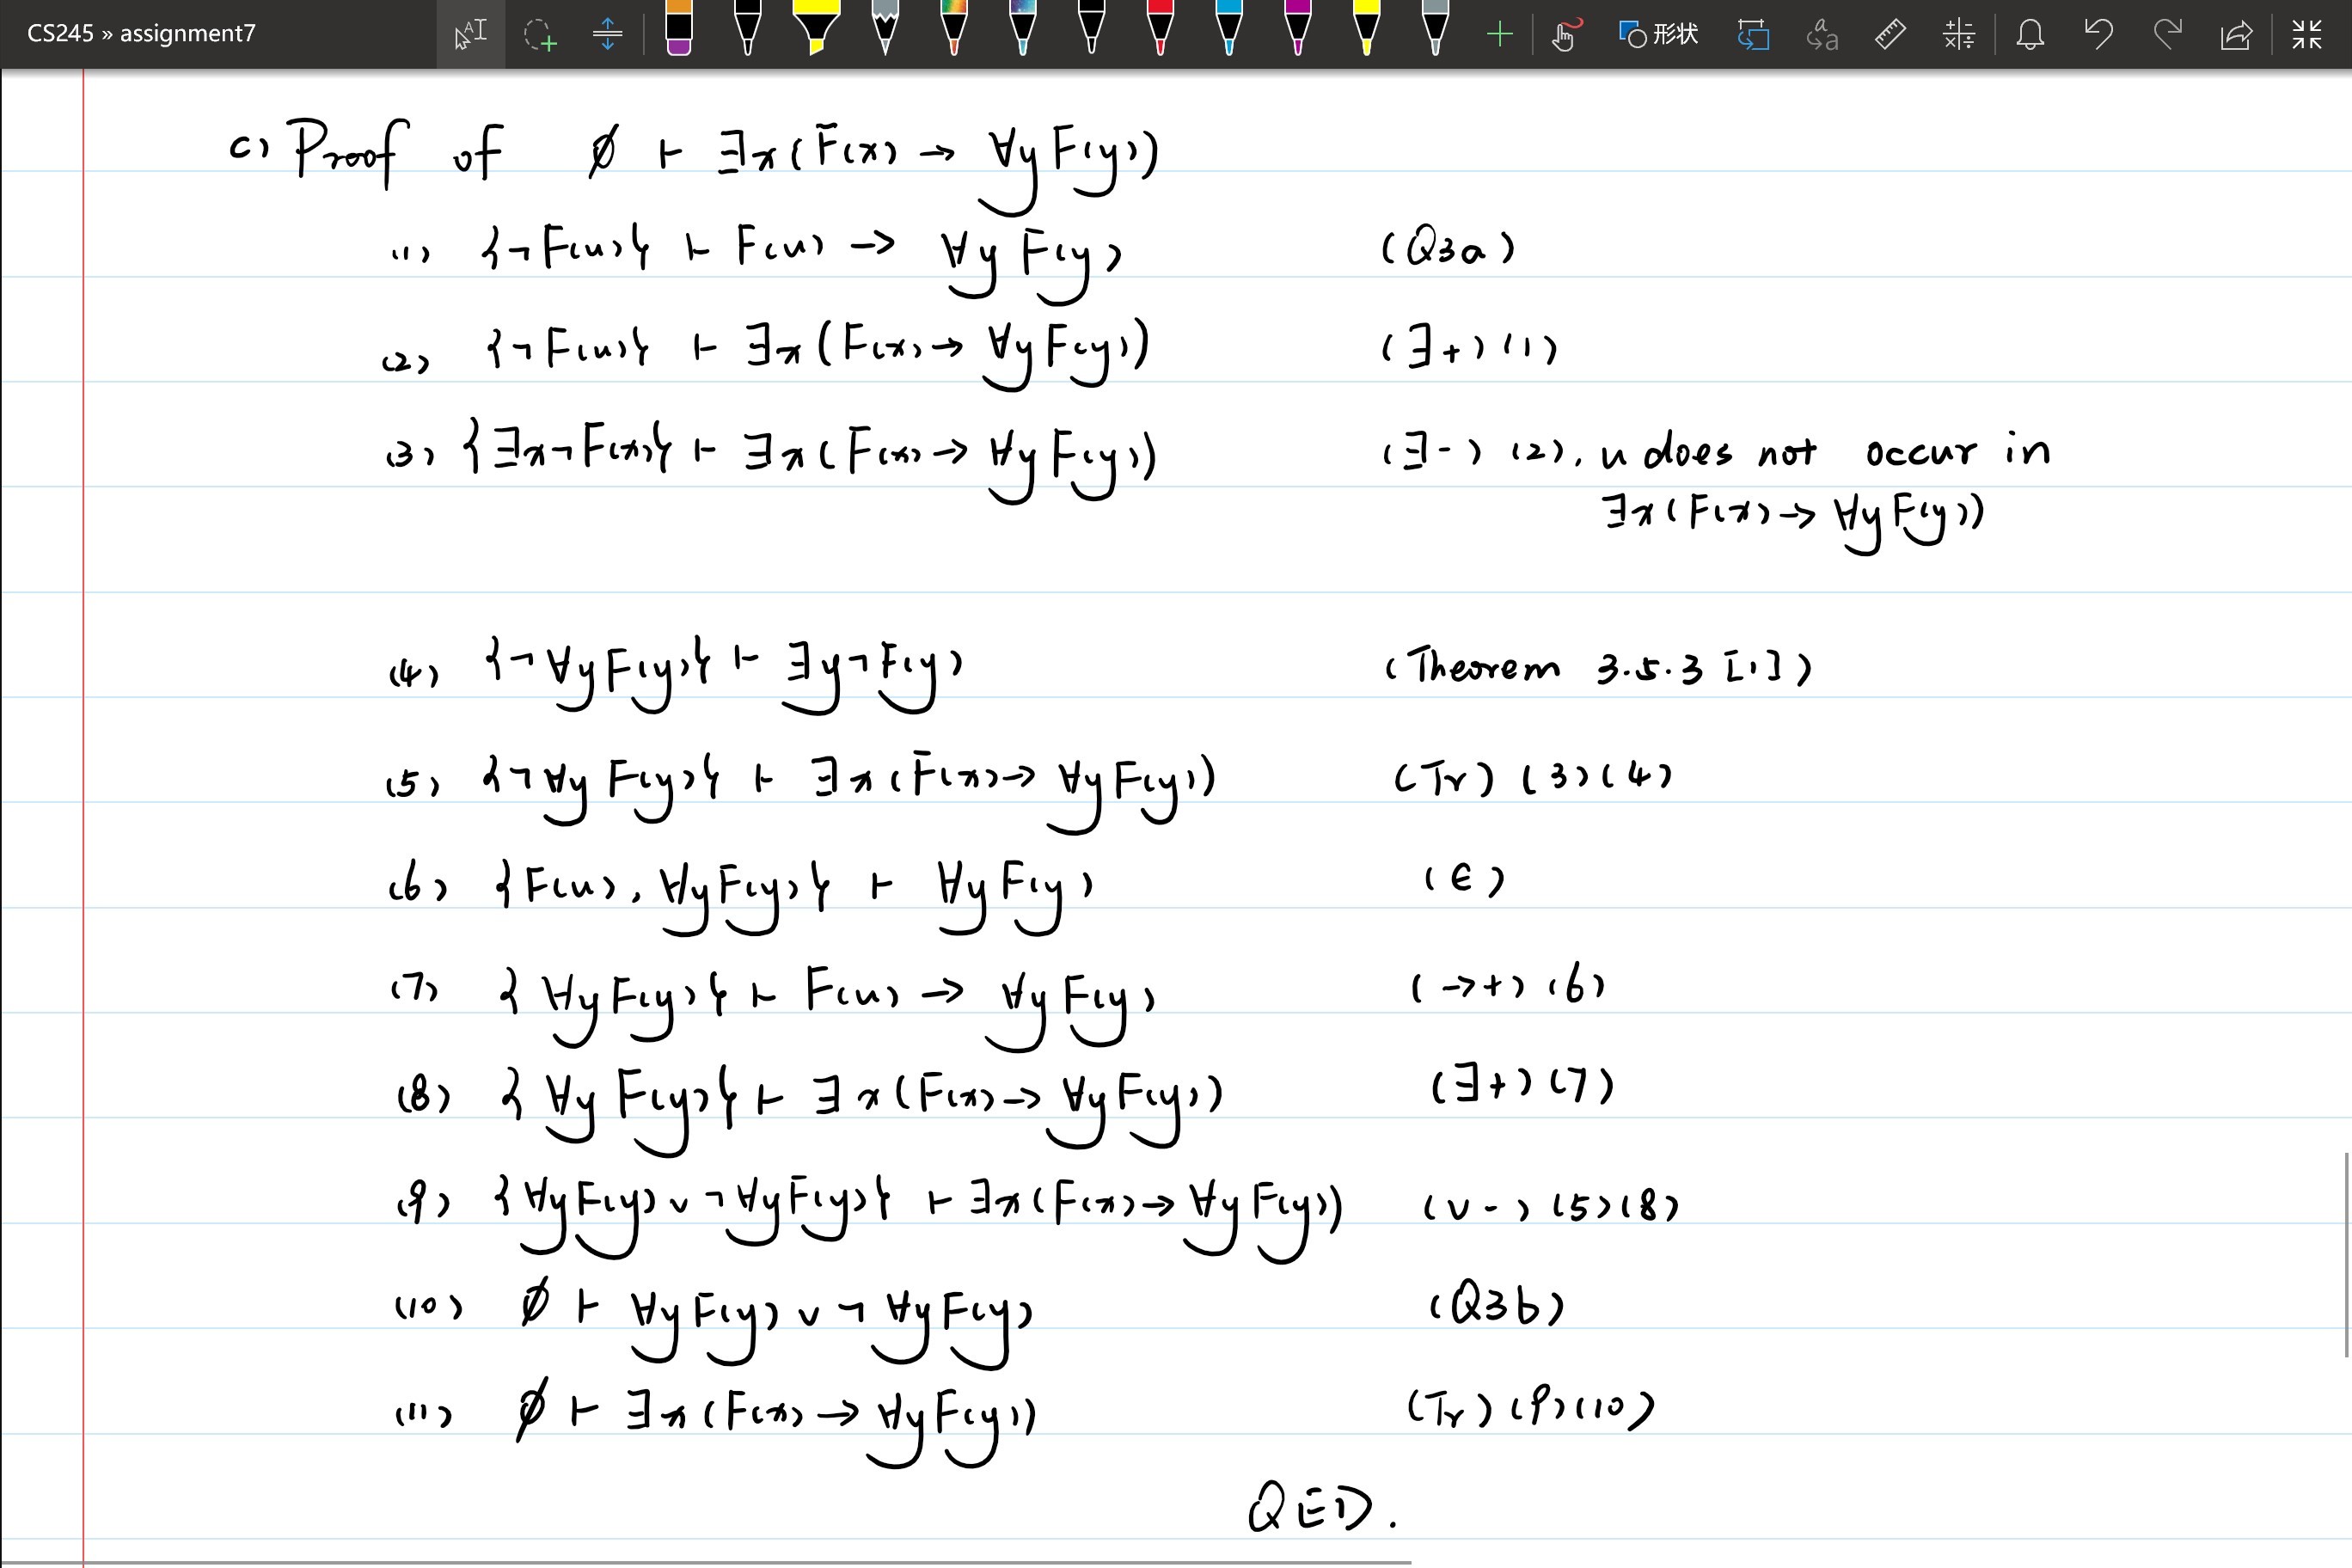 CS245 » assignment7
形状
c) Proof of ∅ ⊢ ∃x(F(x) → ∀yF(y))
(1) {¬F(u)} ⊢ F(u) → ∀yF(y) (Q3a)
(2) {¬F(u)} ⊢ ∃x(F(x) → ∀yF(y)) (∃+)(1)
(3) {∃x¬F(x)} ⊢ ∃x(F(x) → ∀yF(y)) (∃-)(2), u does not occur in
∃x(F(x) → ∀yF(y))
(4) {¬∀yF(y)} ⊢ ∃y¬F(y) (Theorem 3.5.3 [1])
(5) {¬∀yF(y)} ⊢ ∃x(F(x) → ∀yF(y)) (Tr)(3)(4)
(6) {F(u), ∀yF(y)} ⊢ ∀yF(y) (∈)
(7) {∀yF(y)} ⊢ F(u) → ∀yF(y) (→+)(6)
(8) {∀yF(y)} ⊢ ∃x(F(x) → ∀yF(y)) (∃+)(7)
(9) {∀yF(y) ∨ ¬∀yF(y)} ⊢ ∃x(F(x) → ∀yF(y)) (∨-)(5)(8)
(10) ∅ ⊢ ∀yF(y) ∨ ¬∀yF(y) (Q3b)
(11) ∅ ⊢ ∃x(F(x) → ∀yF(y)) (Tr)(9)(10)
QED.